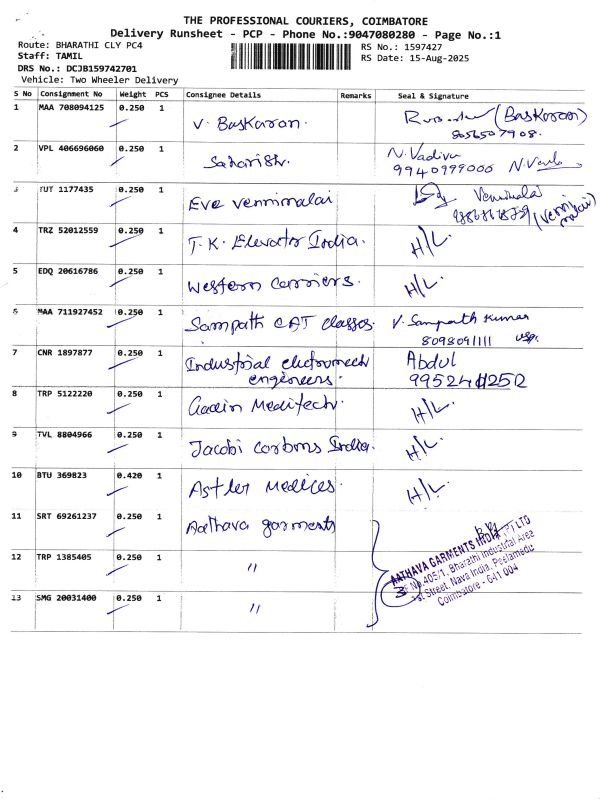 THE PROFESSIONAL COURIERS, COIMBATORE
Delivery Runsheet - PCP - Phone No.:9047080280 - Page No.:1
Route: BHARATHI CLY PC4 RS No.: 1597427
Staff: TAMIL RS Date: 15-Aug-2025
DRS No.: DCJB159742701
Vehicle: Two Wheeler Delivery
S No Consignment No Weight PCS Consignee Details Remarks Seal & Signature
1 MAA 708094125 0.250 1 V. Baskaran. (Baskaran)
8056507908.
2 VPL 406696060 0.250 1 N. Vadivu
9940999000
3 TUT 1177435 0.250 1 Eve vennimalai Vennimalai
(Vennimalai)
4 TRZ 52012559 0.250 1 T.K. Elevator India. H/L.
5 EDQ 20616786 0.250 1 Western carriers. H/L.
6 MAA 711927452 0.250 1 Sampath CAT classes. V. Sampath Kumar
8098091111
7 CNR 1897877 0.250 1 Industrial electromech Abdul
engineers.
8 TRP 5122220 0.250 1 Meditech. H/L.
9 TVL 8804966 0.250 1 Jacobi carbons India. H/L.
10 BTU 369823 0.420 1 H/L.
11 SRT 69261237 0.250 1 Aathava garments
12 TRP 1385405 0.250 1 "
13 SMG 20031400 0.250 1 "
AATHAVA GARMENTS INDIA (P) LTD
No.405/1, Bharathi Industrial Area
Street, Nava India, Peelamedu
Coimbatore - 641 004
3